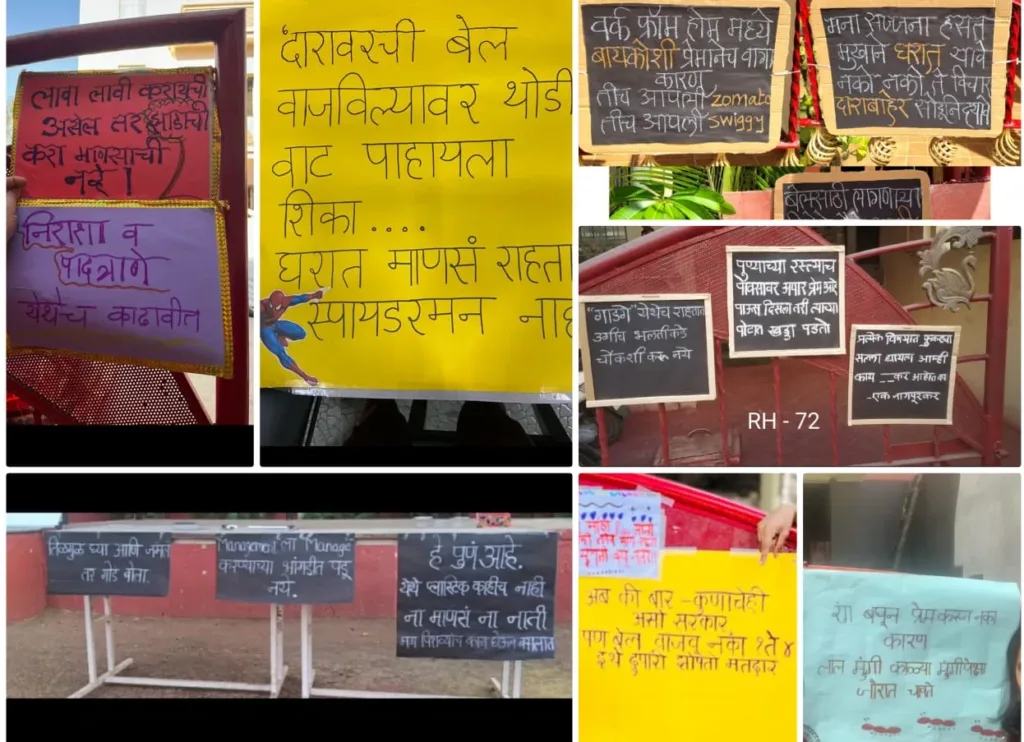 लावा लावी करायची
असेल तर झाडांची
करा माणसाची
नव्हे !
निराशा व
पादत्राणे
येथेच काढावीत
दारावरची बेल
वाजविल्यावर थोडी
वाट पाहायला
शिका....
घरात माणसं राहता
स्पायडरमन नाह
वर्क फ्रॉम होम मध्ये
बायकोशी प्रेमानेच वागा
कारण
तीच आपली zomato
तीच आपली swiggy
मना सज्जना हसत
मुखाने घरात यावे
नको नको ते विचार
दाराबाहेर सोडूनि द्यावे
बेलसाठी लागणाऱ्या
"गाडगे" येथेच राहतात
उगीच भलतीकडे
चौकशी करू नये
पुण्याच्या रस्त्यांचं
पावसावर अपार प्रेम आहे
पाऊस दिसला तरी त्याच्या
पोटात खड्डा पडतो
प्रत्येक विषयात फुकटचा
सल्ला द्यायला आम्ही
काय __कर आहोत का
-एक नागपूरकर
RH - 72
तिळगुळ घ्या आणि जमलं
तर गोड बोला.
Management ला Manage
करण्याच्या भानगडीत पडू
नये.
हे पुणं आहे.
येथे प्लास्टिक काहीच नाही
ना माणसं ना नाती
अब की बार - कुणाचेही
असो सरकार
पण बेल वाजवू नका १ ते ४
इथे दुपारी झोपतो मतदार
रंग बघून प्रेम करू नका
कारण
लाल मुंगी काळ्या मुंगीपेक्षा
जोरात चावते